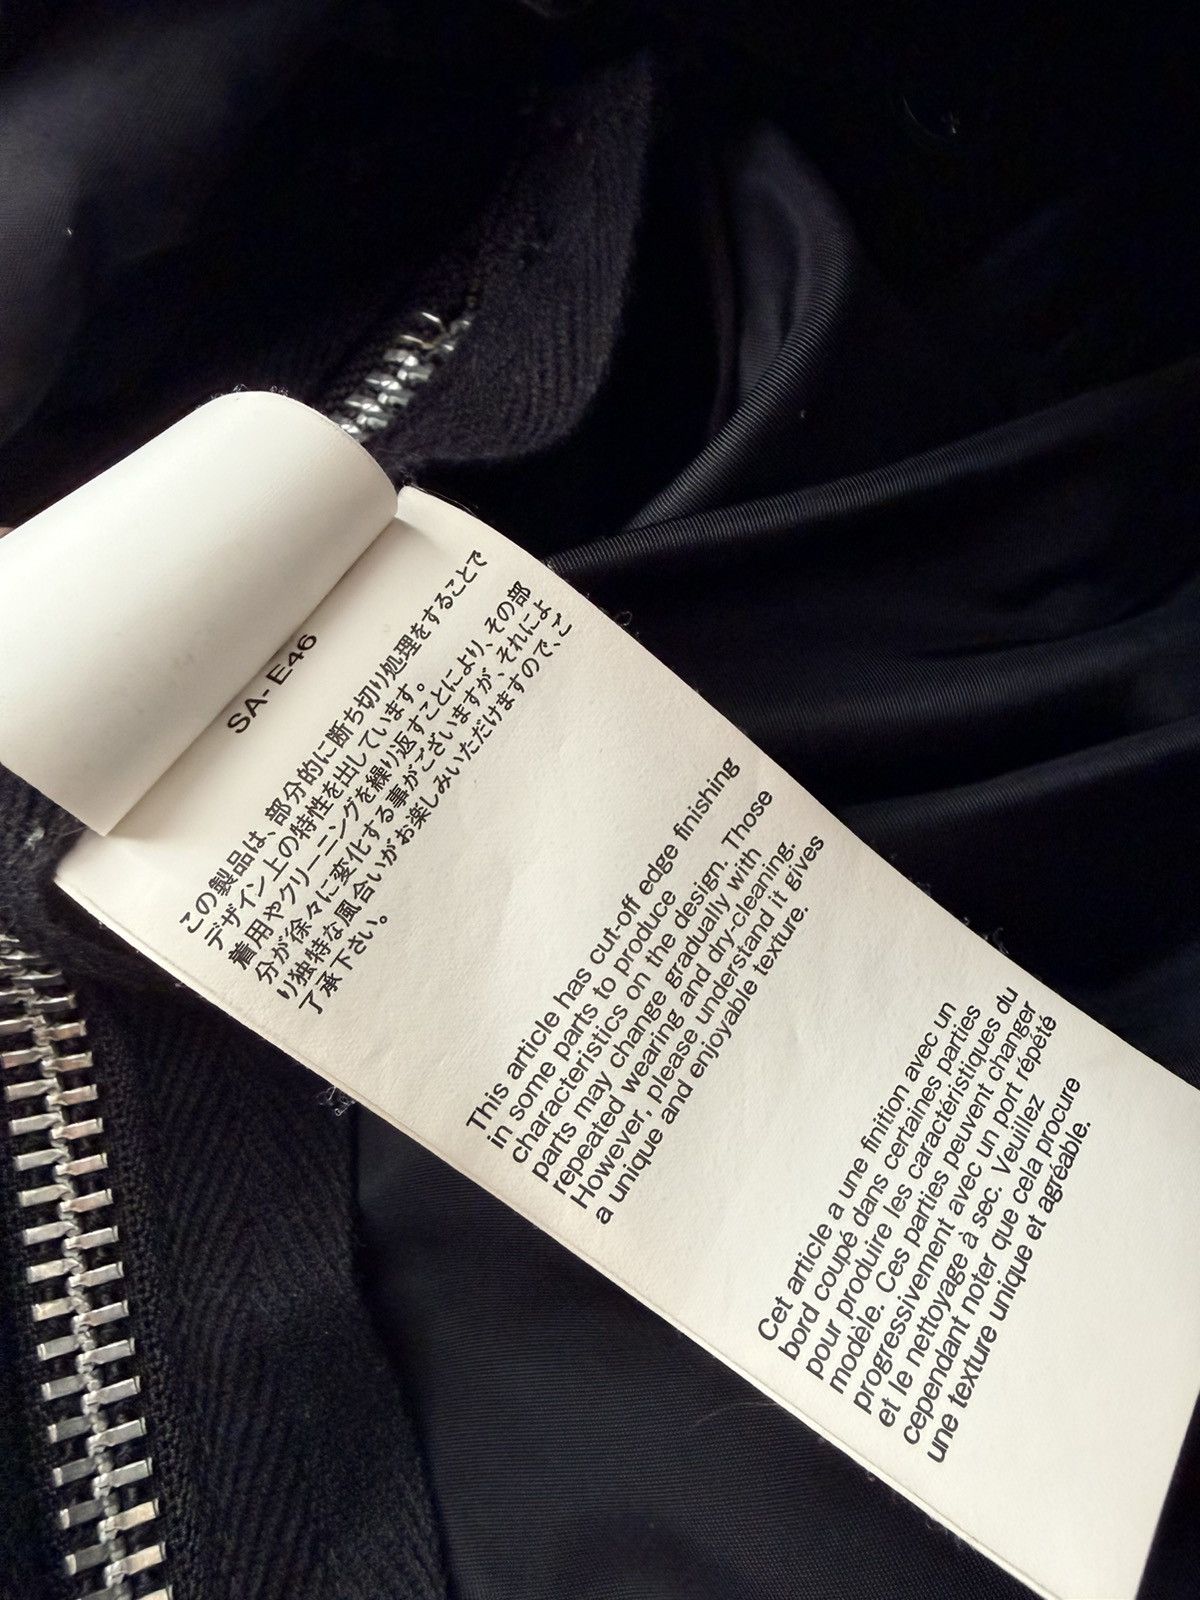 SA- E46
この製品は、部分的に断ち切り処理をすることで
デザイン上の特性を出しています。
着用やクリーニングを繰り返すことにより、その部
分が徐々に変化する事がございますが、それによ
り独特な風合いがお楽しみいただけますので、ご
了承下さい。
This article has cut-off edge finishing
in some parts to produce
characteristics on the design. Those
parts may change gradually with
repeated wearing and dry-cleaning.
However, please understand it gives
a unique and enjoyable texture.
Cet article a une finition avec un
bord coupé dans certaines parties
pour produire les caractéristiques du
modèle. Ces parties peuvent changer
progressivement avec un port répété
et le nettoyage à sec. Veuillez
cependant noter que cela procure
une texture unique et agréable.